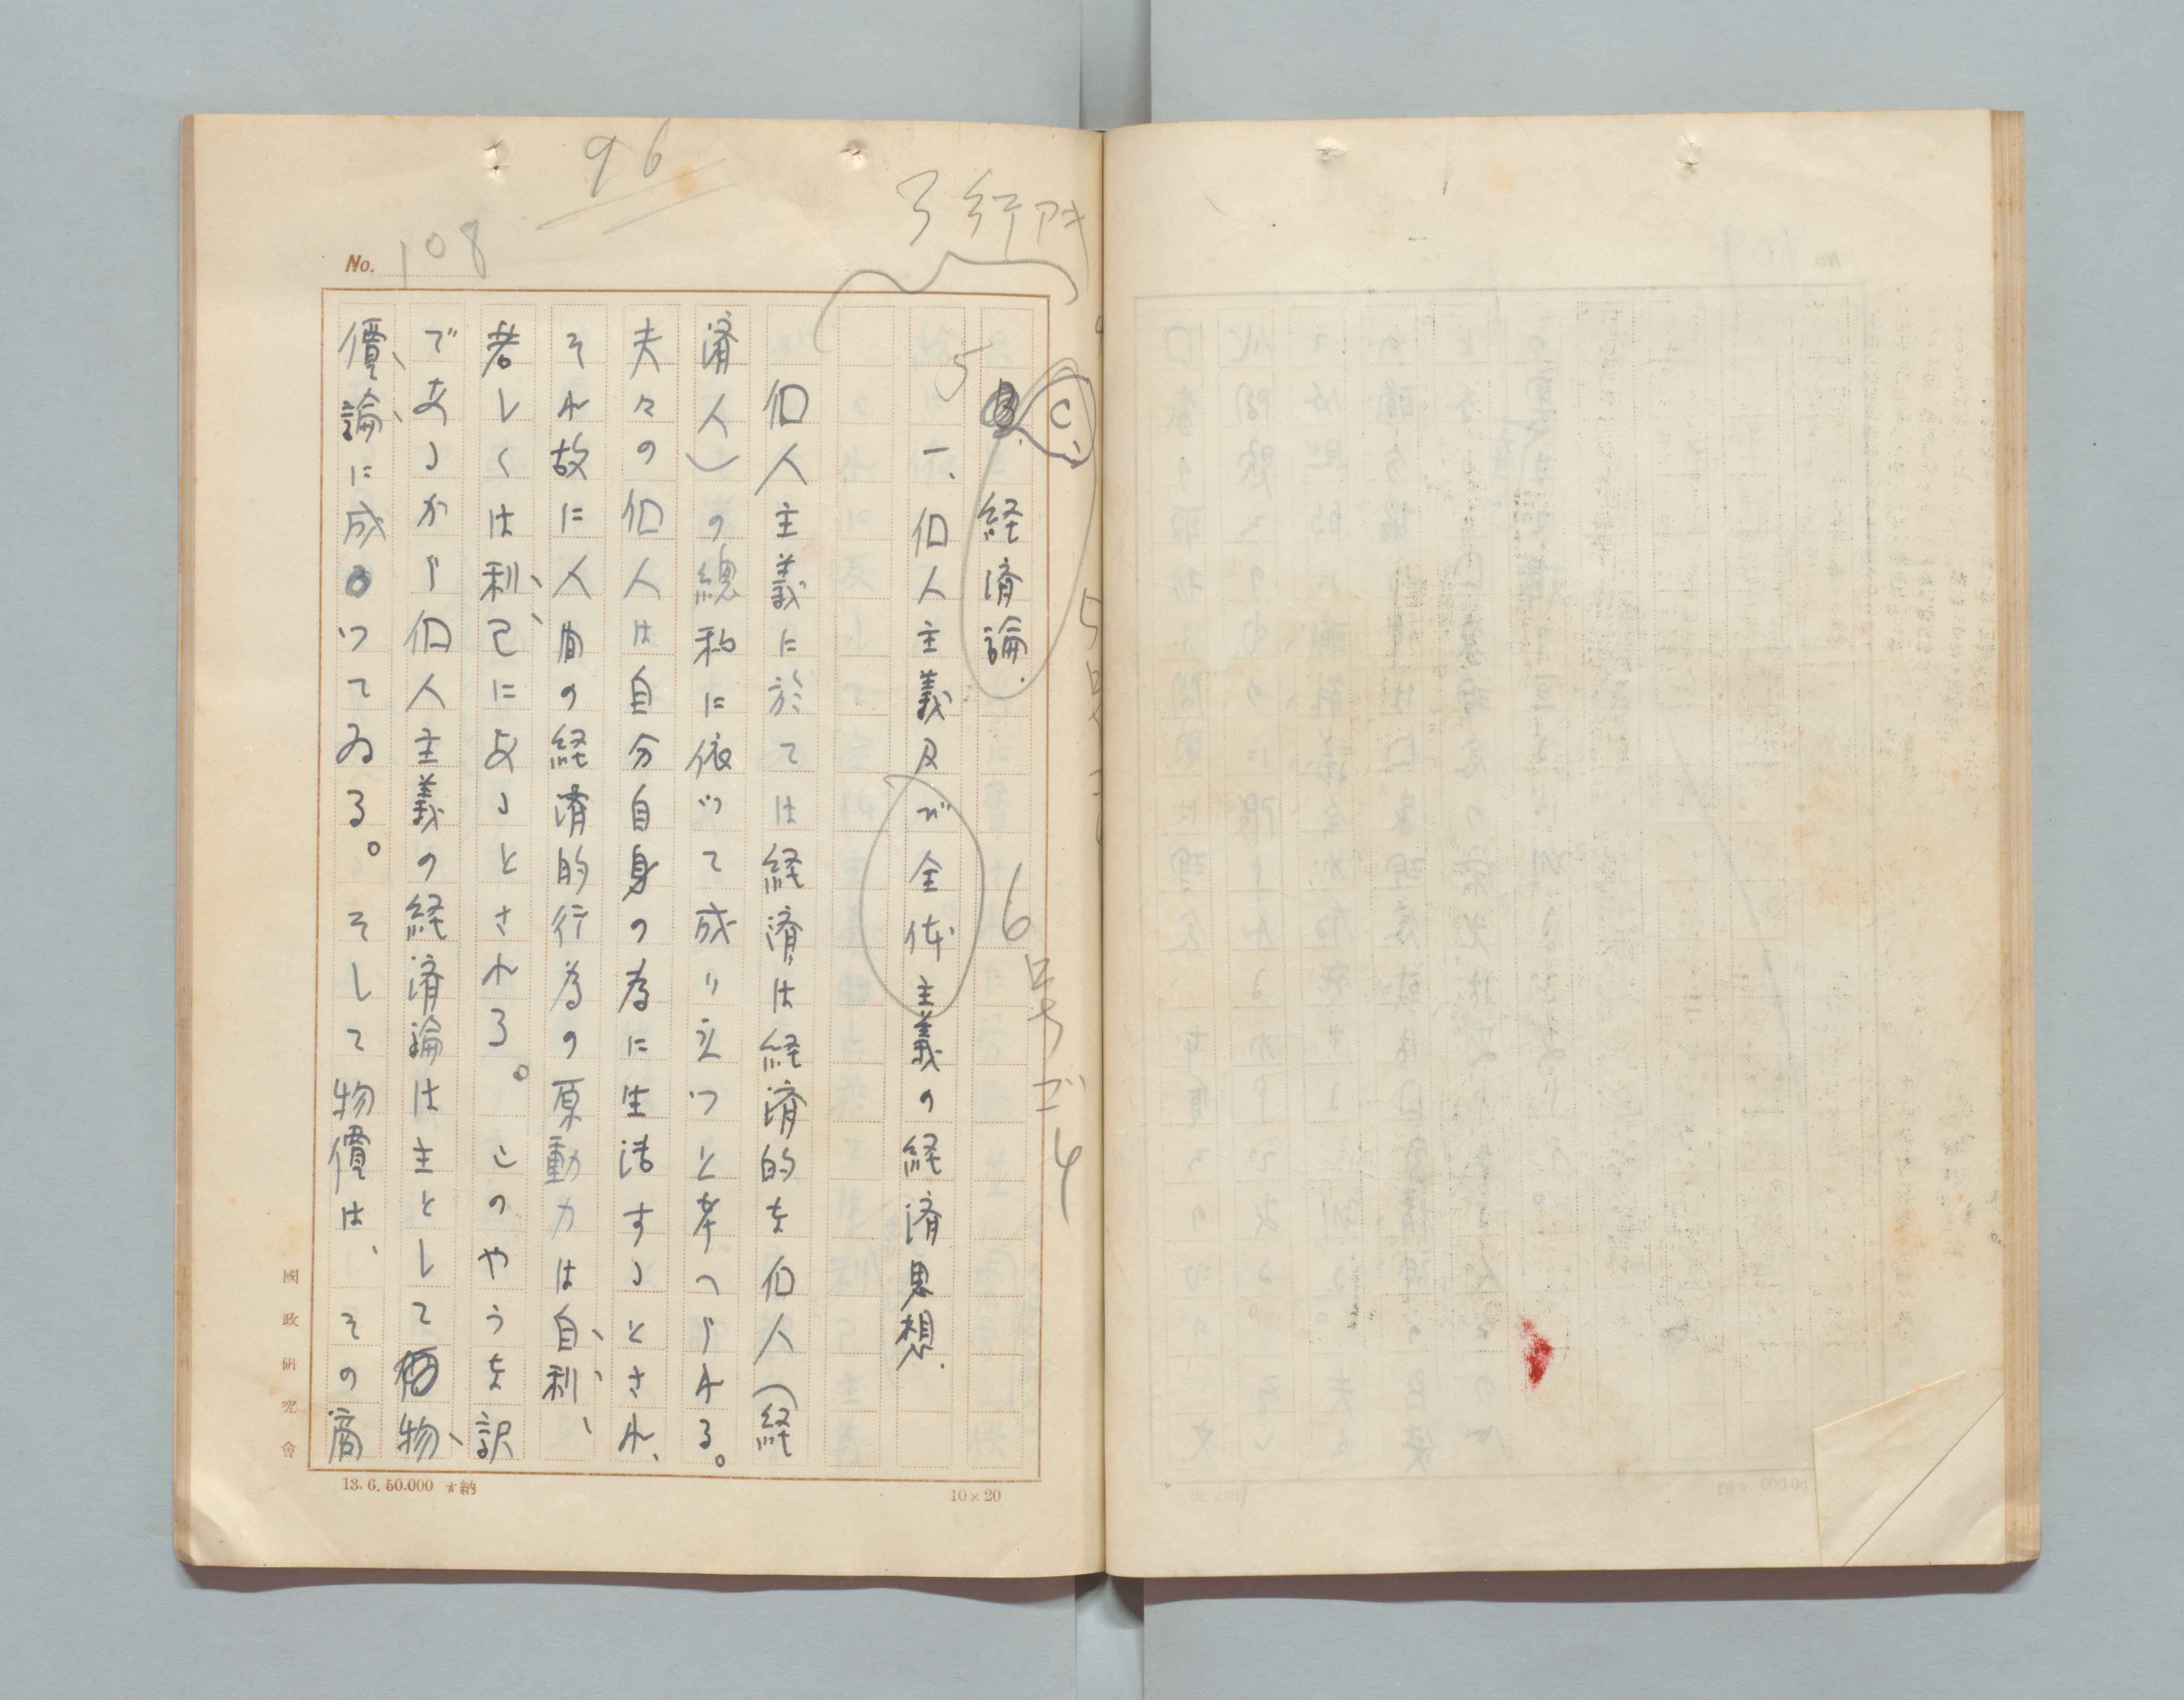 96
No. 108
3行アキ
C、
経済論.
5
一、個人主義及び全体主義の経済思想.
6号ゴ4
個人主義に於ては経済は経済的な個人（経
済人）の總和に依って成り立つと考へられる。
夫々の個人は自分自身の為に生活するとされ、
それ故に人間の経済的行為の原動力は自利、
若しくは利己にあるとされる。このやうな訳
であるから個人主義の経済論は主として物
價論に成つてゐる。そして物價は、その商
國政研究會
13.6.50.000 納
10×20